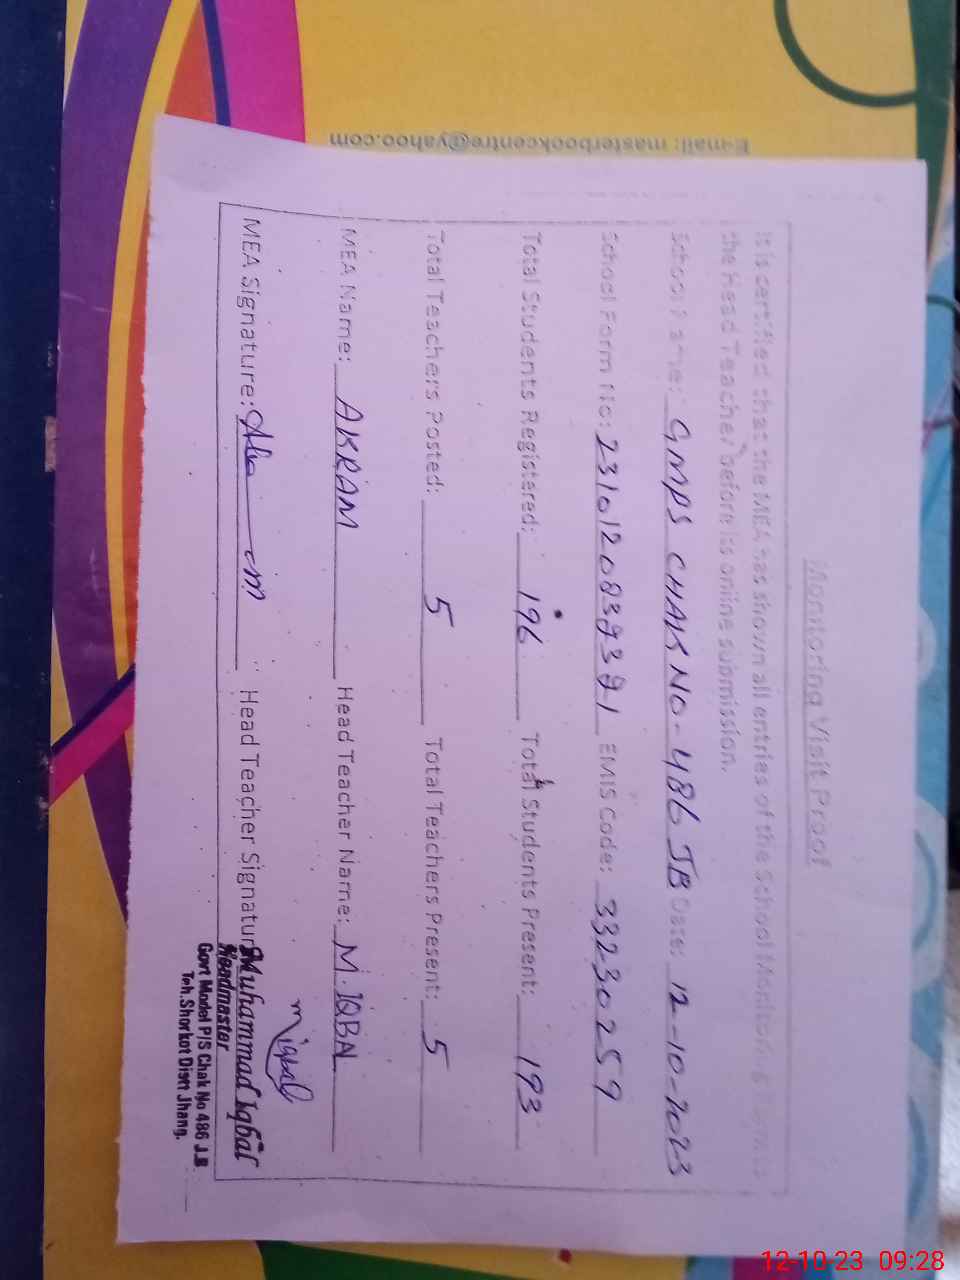 Monitoring Visit Proof
It is certified that the MEA has shown all entries of the School Monitoring
the Head Teacher before its online submission.
School Name: GMPS CHAK NO-486 JB Date: 12-10-2023
School Form No: EMIS Code: 33230259
Total Students Registered: 196 Total Students Present: 193
Total Teachers Posted: 5 Total Teachers Present: 5
MEA Name: AKRAM Head Teacher Name: M.IQBAL
MEA Signature: Head Teacher Signature
M iqbal
Muhammad Iqbal
Headmaster
Govt Model P/S Chak No 486 J.B
Teh.Shorkot Distt Jhang.
E-mail: masterbookcentre@yahoo.com
12-10-23 09:28